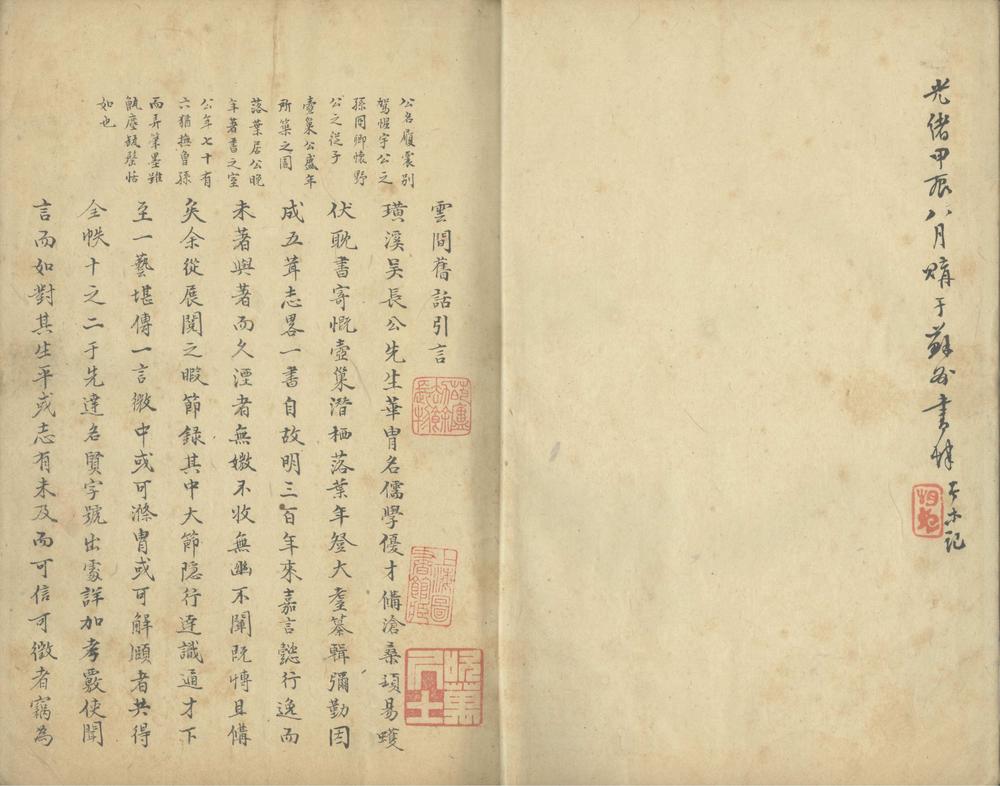 光緒甲辰八月購于蘇州書肆
記
雲間舊話引言
璜溪吳長公先生華胄名儒學優才備滄桑頊易蠖
伏耽書寄慨壺巢潛栖落葉年登大耋纂輯彌勤因
成五茸志畧一書自故明三百年來嘉言懿行逸而
未著與著而久湮者無媺不收無幽不闡既博且備
矣余從展閱之暇節錄其中大節隐行達識通才下
至一藝堪傳一言微中或可滌胃或可解頤者共得
全帙十之二于先達名賢字號出處詳加考覈使聞
言而如對其生平或志有未及而可信可徵者竊為
公名履震别
駕惺宇公之
孫囧卿懷野
公之從子
壺巢公盛年
所築之園
落葉居公晚
年著書之室
公年七十有
六猶撫魯孫
而弄筆墨雖
甑塵缾罄恬
如也
葫蘆
劫餘
長物
上海圖
書館藏